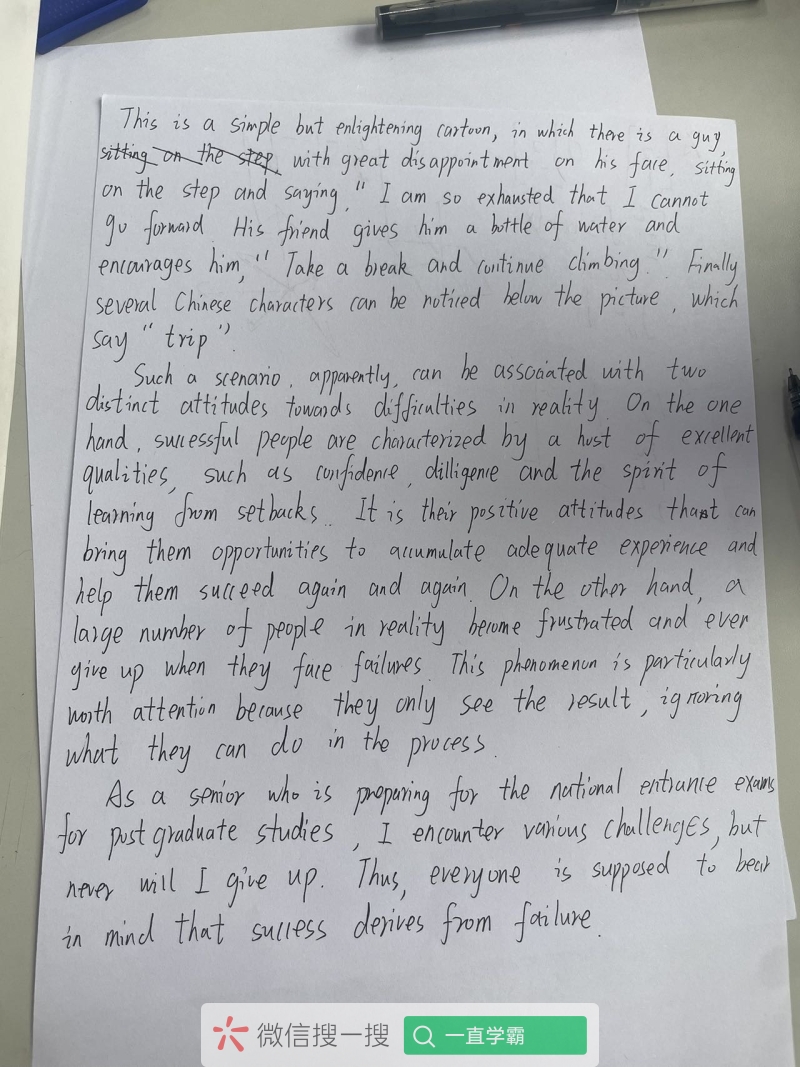 This is a simple but enlightening cartoon, in which there is a guy,
sitting on the step, with great disappointment on his face, sitting
on the step and saying, " I am so exhausted that I cannot
go forward. His friend gives him a bottle of water and
encourages him, " Take a break and continue climbing. " Finally
several Chinese characters can be noticed below the picture, which
say " trip ".
Such a scenario, apparently, can be associated with two
distinct attitudes towards difficulties in reality. On the one
hand, successful people are characterized by a host of excellent
qualities, such as confidence, dilligence and the spirit of
learning from setbacks. It is their positive attitudes that can
bring them opportunities to accumulate adequate experience and
help them succeed again and again. On the other hand, a
large number of people in reality become frustrated and ever
give up when they face failures. This phenomenon is particularly
worth attention because they only see the result, ignoring
what they can do in the process.
As a senior who is preparing for the national entrance exams
for postgraduate studies, I encounter various challenges, but
never will I give up. Thus, everyone is supposed to bear
in mind that success derives from failure.
微信搜一搜 一直学霸